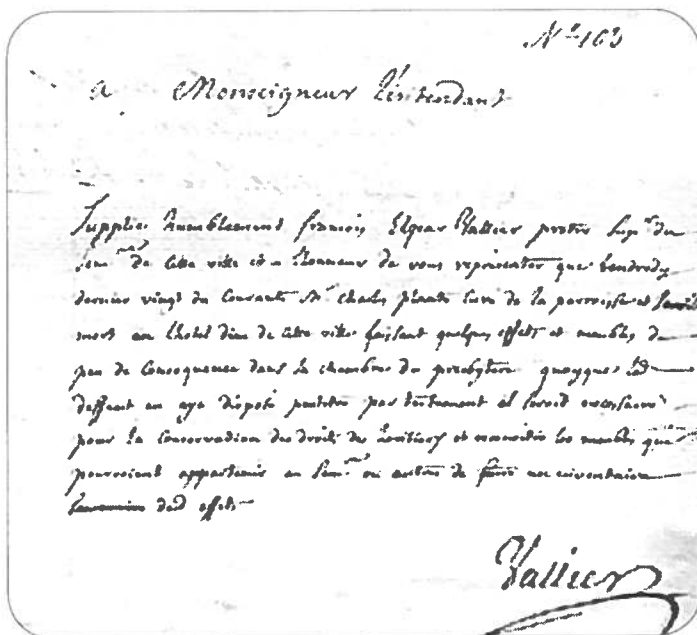 N° 163
a Monseigneur L'intendant
Supplie humblement françois Elzear Vallier pretre Sup.r du
Sem.re de cette ville et a l'honneur de vous representer que vendredy
dernier vingt du courant M.r Charles plante curé de la parroisse est
mort au L'hotel dieu de cette ville laissant quelques effets et meubles de
peu de consequence dans la chambre du presbytere quoyque led
deffunt en aye disposé par testament il seroit necessaire
pour la conservation des droits des heritiers et les meubles qui
pourroient appartenir au Sem.re ou autres de faire un inventaire
desd effets
Vallier